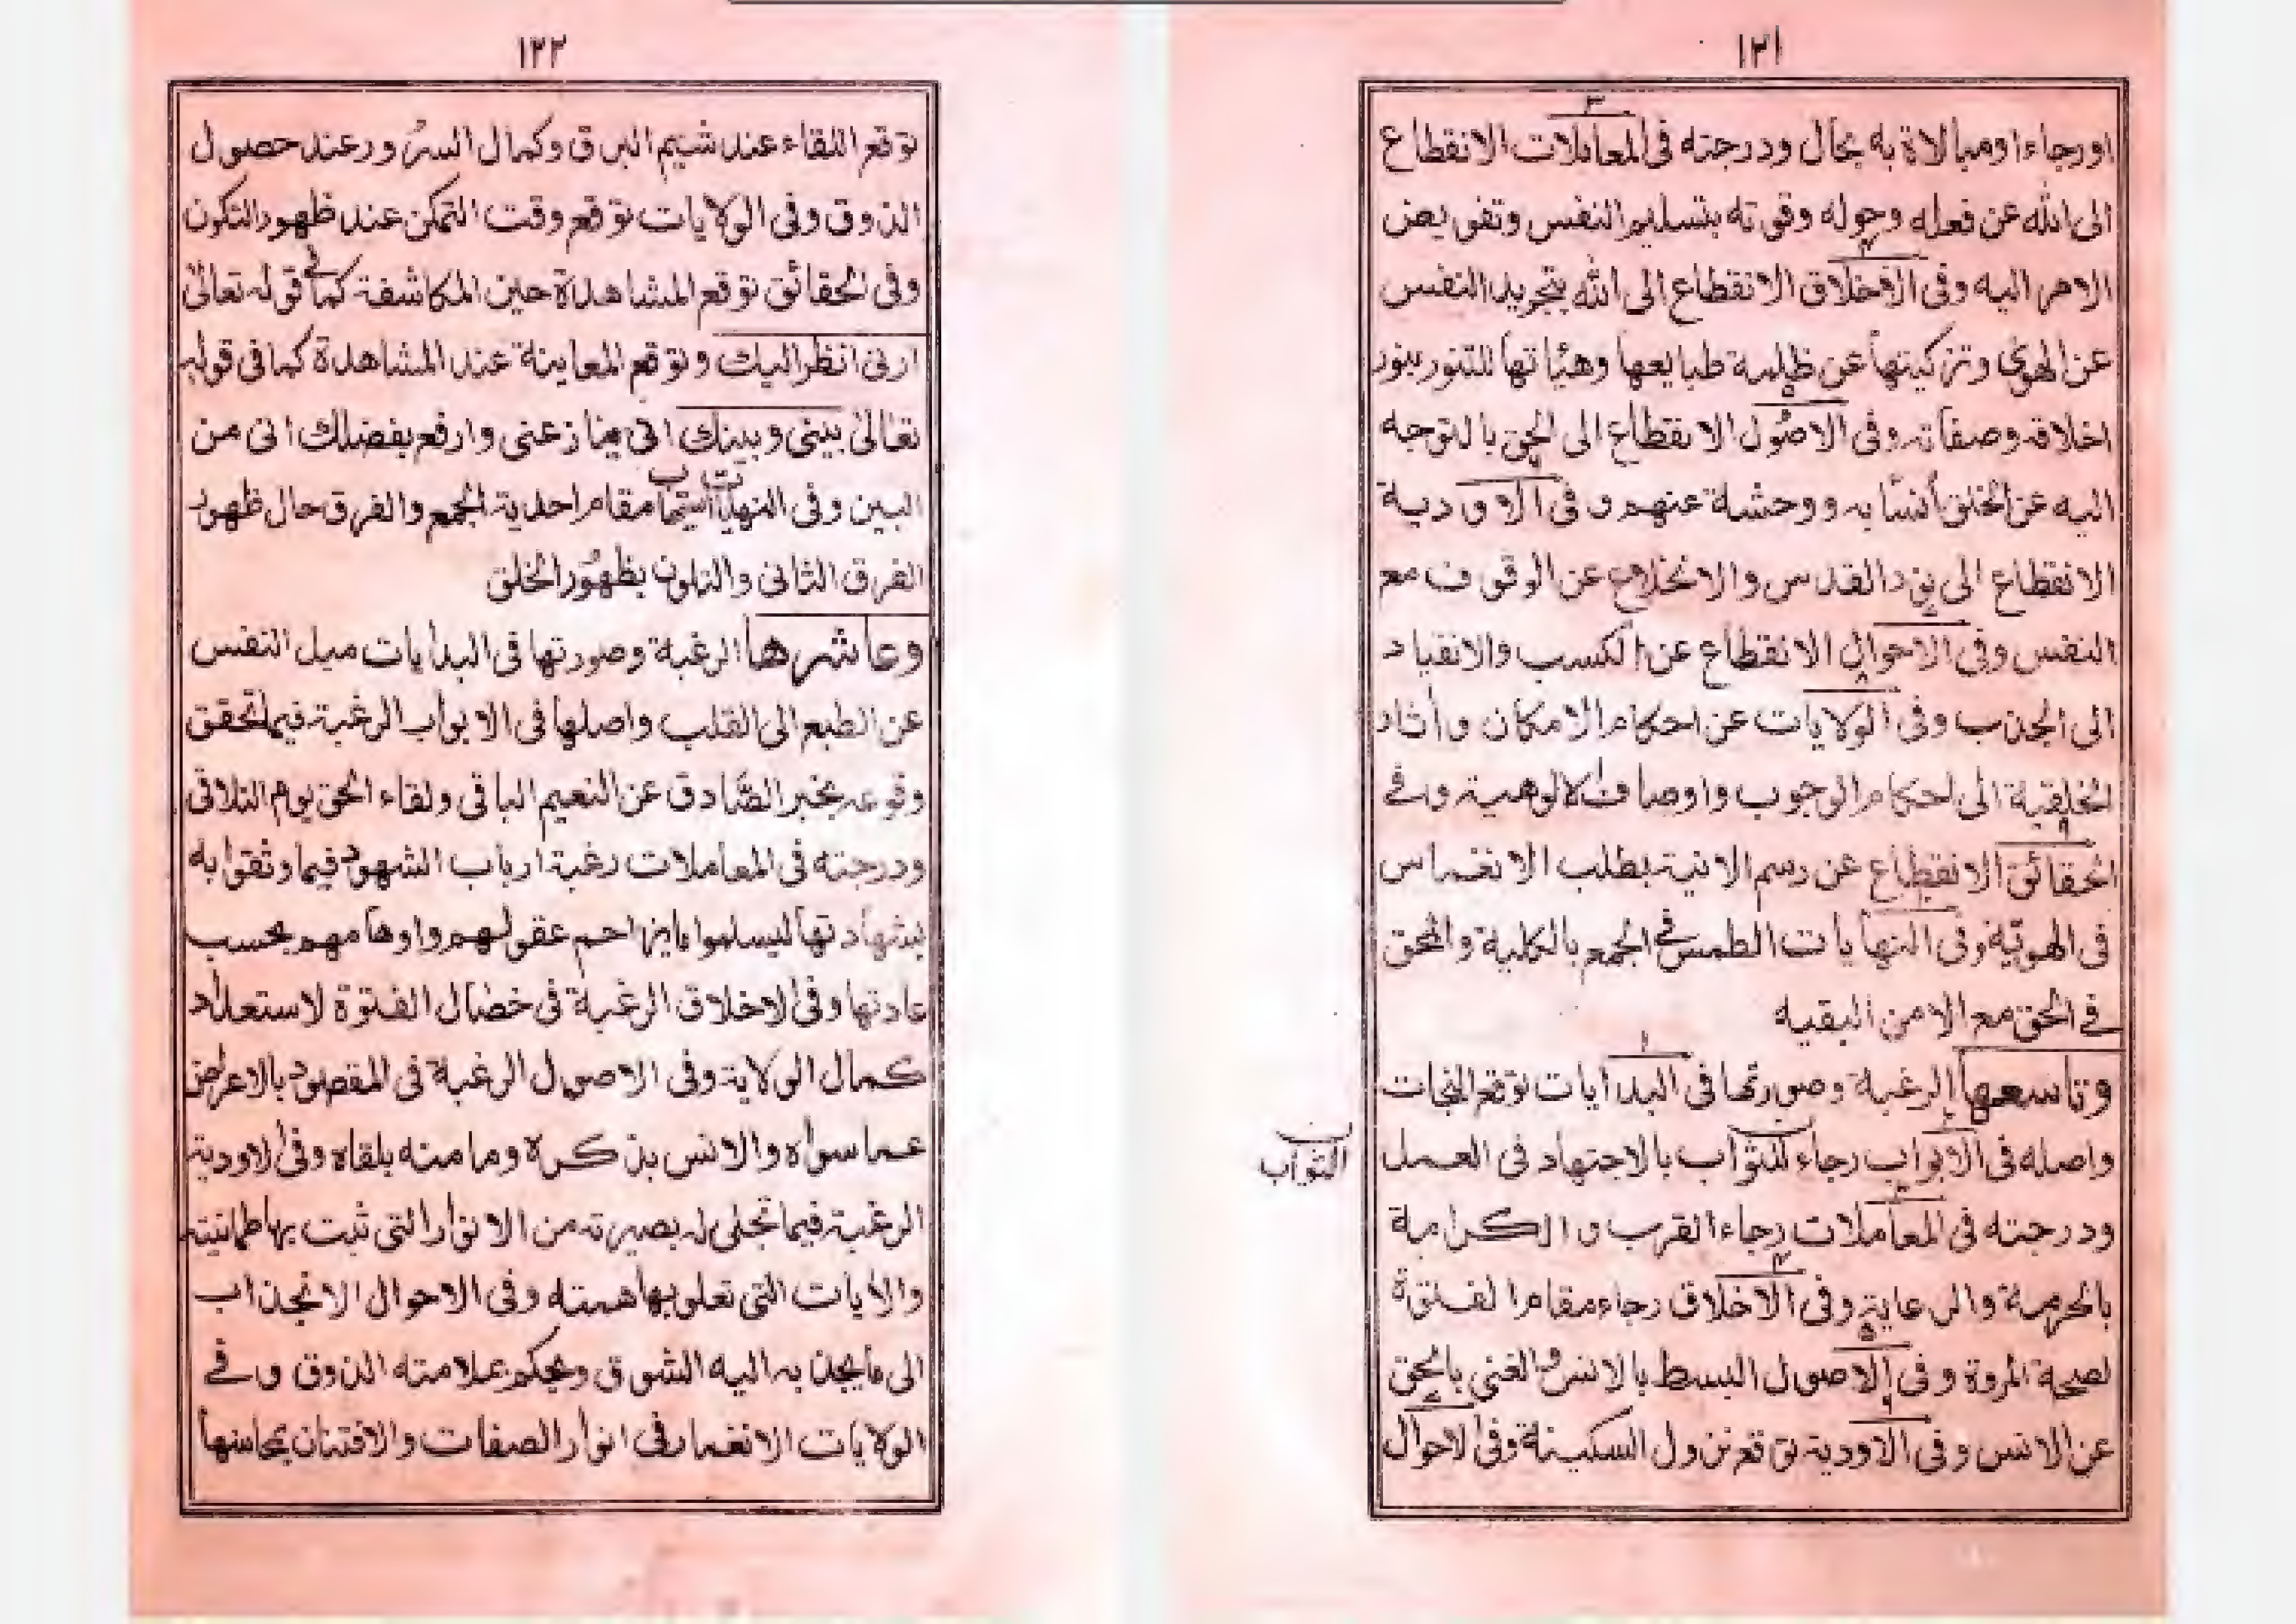 ١٢١
اورجاء اومبالاة به بحال ودرجته فى المعاملات الانقطاع
الى الله عن فعله وحوله وقوته بتسليم النفس وتفويض
الامر اليه وفى الاخلاق الانقطاع الى الله بتجريد النفس
عن الهوى وتزكيتها عن ظلمة طبايعها وهيئاتها للتنور بنور
اخلاقه وصفاته وفى الاصول الانقطاع الى الحق بالتوجه
اليه عن الخلق أنسًا به ووحشة عنهم و فى الاودية
الانقطاع الى نور القدس والانخلاع عن الوقوف مع
النفس وفى الاحوال الانقطاع عن الكسب والانقياد
الى الجذب وفى الولايات عن احكام الامكان وأثار
الخلقية الى احكام الوجوب واوصاف الالوهية وفے
الحقائق الانقطاع عن رسم الانية بطلب الانغماس
فى الهويّة وفى النهايات الطمس فے الجمع بالكلية والمحق
فے الحق مع الامن البقيه
وتاسعها الرغبة وصورتها فى البدايات توقع النجات
واصله فى الابواب رجاء الثواب بالاجتهاد فى العمل
الثواب
ودرجته فى المعاملات رجاء القرب والكرامة
بالحرمة والرعاية وفى الاخلاق رجاء مقام الفتوة
لصحة المروة وفى الاصول البسط بالانس والغنى بالحق
عن الانس وفى الاودية توقع نزول السكينة وفى الاحوال
١٢٢
توقع اللقاء عند شيم البرق وكمال السرور عند حصول
الذوق وفى الولايات توقع وقت التمكن عند ظهور التكون
وفى الحقائق توقع المشاهدة حين المكاشفة كما فے قوله تعالىٰ
ارنى انظر اليك وتوقع المعاينة عند المشاهدة كما فى قوله
تعالىٰ بينى وبينك انى ينازعنى وارفع بفضلك انى من
البين وفى النهايات مقام احدية الجمع والفرق حال ظهور
الفرق الثانى والتلون بظهور الخلق
وعاشرها الرغبة وصورتها فى البدايات ميل النفس
عن الطبع الى القلب واصلها فى الابواب الرغبة فيما تحقق
وقوعه بخبر الصّادق عن النعيم الباقى ولقاء الحق يوم التلاقى
ودرجته فى المعاملات رغبة ارباب الشهود فيما وثقوا به
بشهادتها ليسلموا مايزاحم عقولهم واوهامهم بحسب
عادتها وفى الاخلاق الرغبة فى خصال الفتوة لاستعداد
كمال الولاية وفى الاصول الرغبة فى المقصود بالاعراض
عما سواه والانس بذكره ومامنه بلقاه وفى الاودية
الرغبة فيما تجلى له بصيرته من الانوار التى ثبت بها طمانينته
والأيات التى تعلو بها همته وفى الاحوال الانجذاب
الى مايجذبه اليه الشوق ويحكم علامته الذوق وفے
الولايات الانغمار فى انوار الصفات والافتنان بمحاسنها